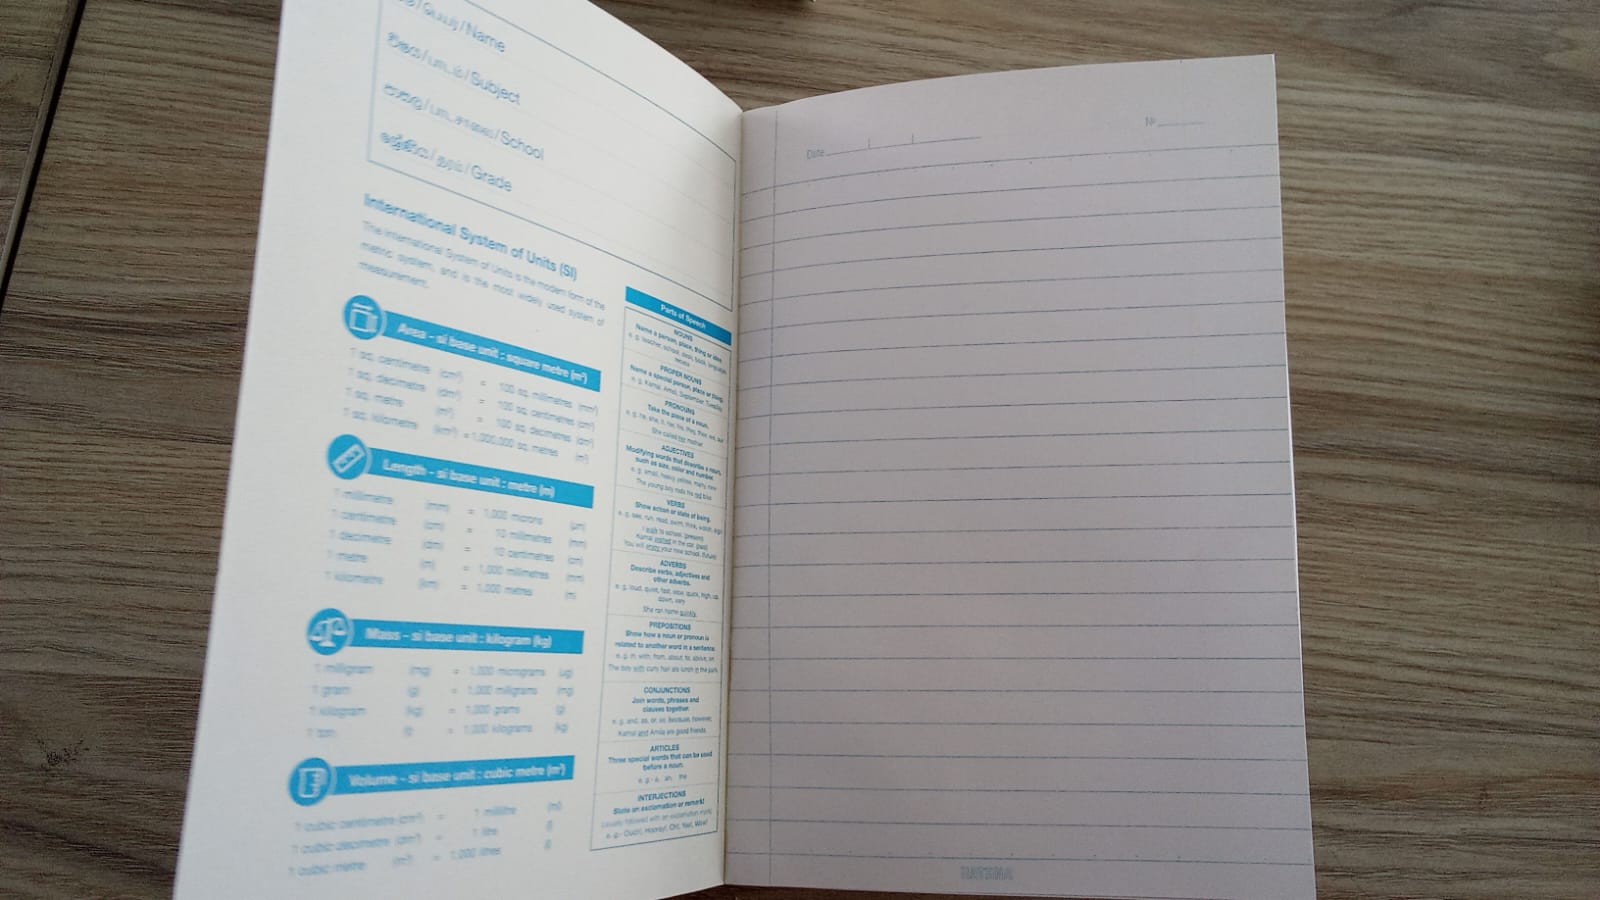 නම / பெயர் / Name
විෂය / பாடம் / Subject
පාසල / பாடசாலை / School
ශ්‍රේණිය / தரம் / Grade
International System of Units (SI)
The International System of Units is the modern form of the
metric system, and is the most widely used system of
measurement.
Area - si base unit : square metre (m²)
1 sq. centimetre (cm²) = 100 sq. millimetres (mm²)
1 sq. decimetre (dm²) = 100 sq. centimetres (cm²)
1 sq. metre (m²) = 100 sq. decimetres (dm²)
1 sq. kilometre (km²) = 1,000,000 sq. metres (m²)
Length - si base unit : metre (m)
1 millimetre (mm) = 1,000 microns (μm)
1 centimetre (cm) = 10 millimetres (mm)
1 decimetre (dm) = 10 centimetres (cm)
1 metre (m) = 1,000 millimetres (mm)
1 kilometre (km) = 1,000 metres (m)
Mass - si base unit : kilogram (kg)
1 milligram (mg) = 1,000 micrograms (μg)
1 gram (g) = 1,000 miligrams (mg)
1 kilogram (kg) = 1,000 grams (g)
1 ton (t) = 1,000 kilograms (kg)
Volume - si base unit : cubic metre (m³)
1 cubic centimetre (cm³) = 1 millilitre (ml)
1 cubic decimetre (dm³) = 1 litre (l)
1 cubic metre (m³) = 1,000 litres (l)
Parts of Speech
NOUNS
Name a person, place, thing or idea.
e. g. teacher, school, desk, book, languages,
PROPER NOUNS
Name a special person, place or thing.
e. g. Kamal, Amali, September, Tuesday
PRONOUNS
Take the place of a noun.
She called her mother.
ADJECTIVES
Modifying words that describe a noun,
such as size, color and number.
e. g. small, heavy, yellow, many, nine
The young boy rode his red bike
VERBS
Show action or state of being.
e. g. see, run, read, swim, think, watch,
I walk to school. (present)
Kamal visited in the car. (past)
You will enjoy your new school. (future)
ADVERBS
Describe verbs, adjectives and
other adverbs.
e. g. loud, quiet, fast, slow, quick, high, up,
down, very
She ran home quickly.
PREPOSITIONS
Show how a noun or pronoun is
related to another word in a sentence.
e. g. in, with, from, about, to, above, on
The boy with curly hair ate lunch in the park.
CONJUNCTIONS
Join words, phrases and
clauses together.
e. g. and, as, or, so, because, however,
Kamal and Amila are good friends.
ARTICLES
Three special words that can be used
before a noun.
e. g - a, an, the
INTERJECTIONS
State an exclamation or remark!
Usually followed with an exclamation mark(!)
e. g - Ouch!, Hooray!, Oh!, Yes!, Wow!
Date
№
RATHNA